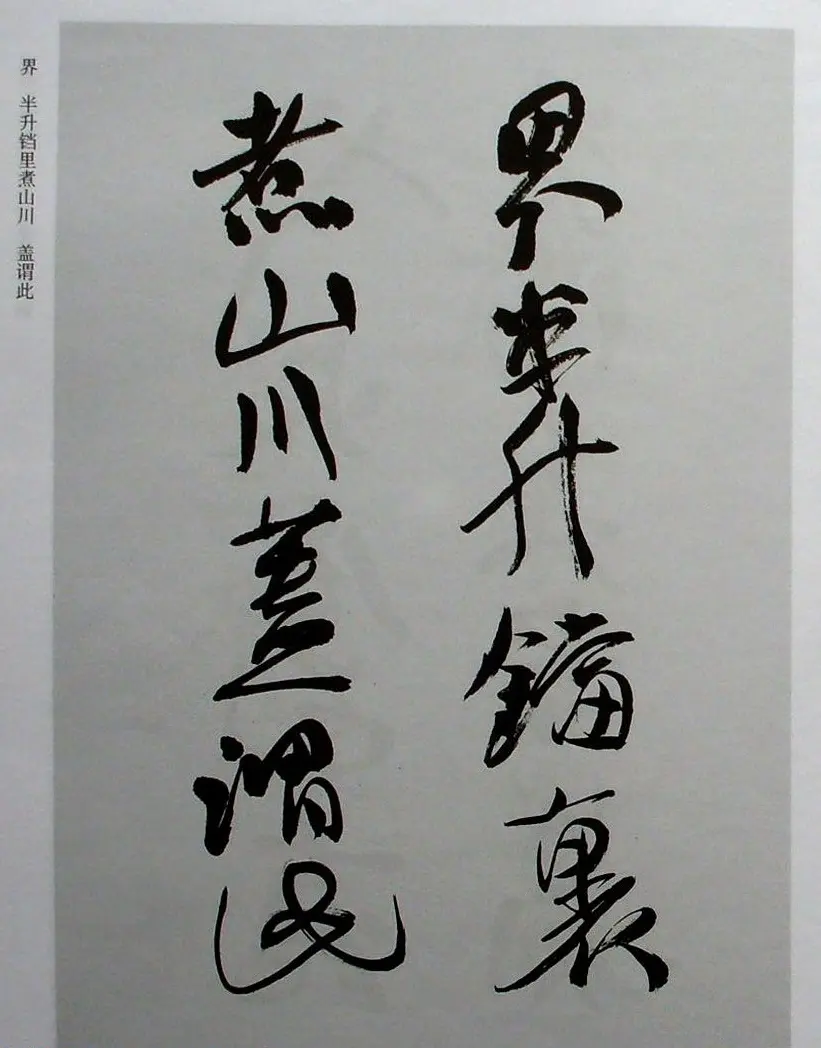 界半升鐺裏
煮山川蓋謂此
界 半升铛里煮山川 盖谓此